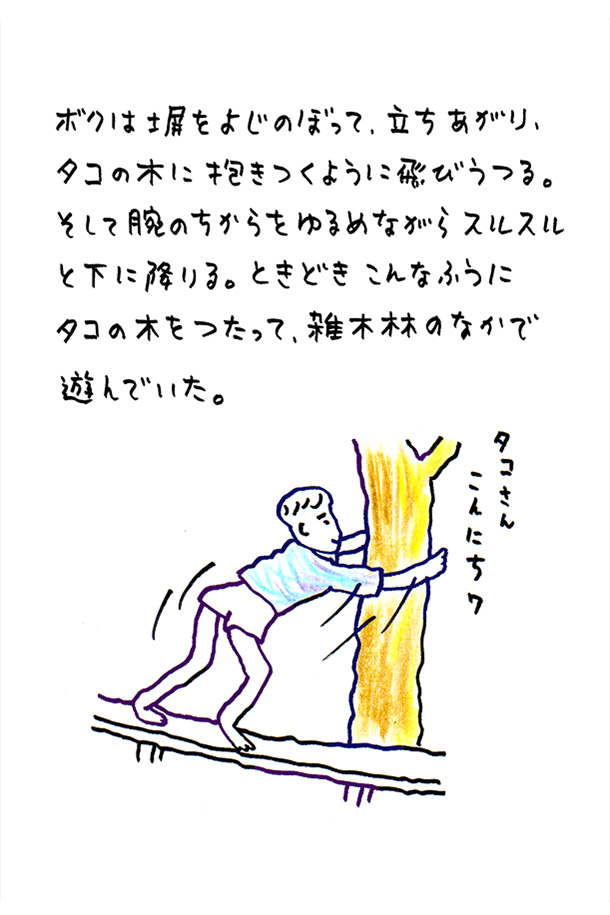 ボクは塀をよじのぼって、立ちあがり、
タコの木に抱きつくように飛びうつる。
そして腕のちからをゆるめながらスルスル
と下に降りる。ときどきこんなふうに
タコの木をつたって、雑木林のなかで
遊んでいた。
タコさん
こんにちワ